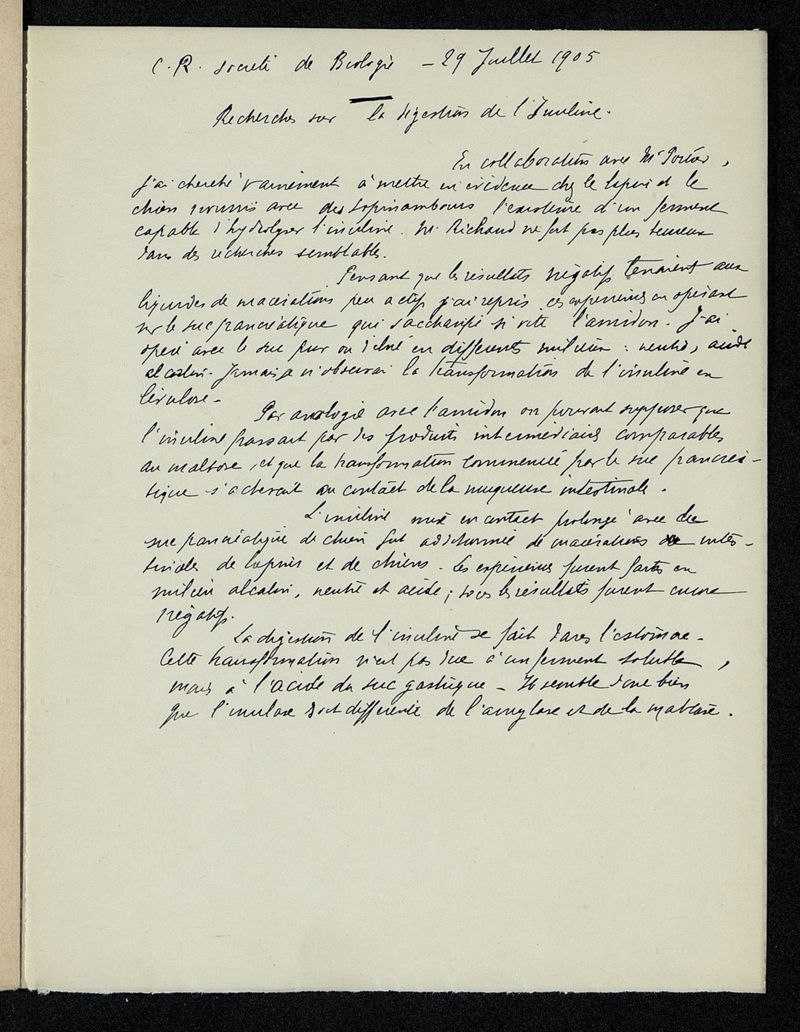 C. R. Société de Biologie – 29 Juillet 1905
Recherches sur la digestion de l'Inuline.
En collaboration avec Mr Portier,
j'ai cherché vainement à mettre en évidence chez le lapin et le
chien nourris avec des topinambours l'existence d'un ferment
capable d'hydrolyser l'inuline. Mr Richaud ne fut pas plus heureux
dans des recherches semblables.
Pensant que les résultats négatifs tenaient aux
liquides de macérations peu actifs j'ai repris ces expériences en opérant
sur le suc pancréatique qui saccharifie si vite l'amidon. J'ai
opéré avec le suc pur ou dilué en différents milieux : neutre, acide
alcalin. Jamais je n'observai la transformation de l'inuline en
lévulose –
Par analogie avec l'amidon on pouvait supposer que
l'inuline passait par des produits intermédiaires comparables
au maltose, et que la transformation commencée par le suc pancréa-
tique s'achevait au contact de la muqueuse intestinale.
L'inuline mise en contact prolongé avec de
suc pancréatique de chien fut additionnée de macérations intes-
tinales de lapins et de chiens. Les expériences furent faites en
milieu alcalin, neutre et acide ; tous les résultats furent encore
négatifs.
La digestion de l'inuline se fait dans l'estomac –
Cette transformation n'est pas due à un ferment soluble,
mais à l'acide du suc gastrique – Il semble donc bien
que l'inulase soit différente de l'amylase et de la maltase.